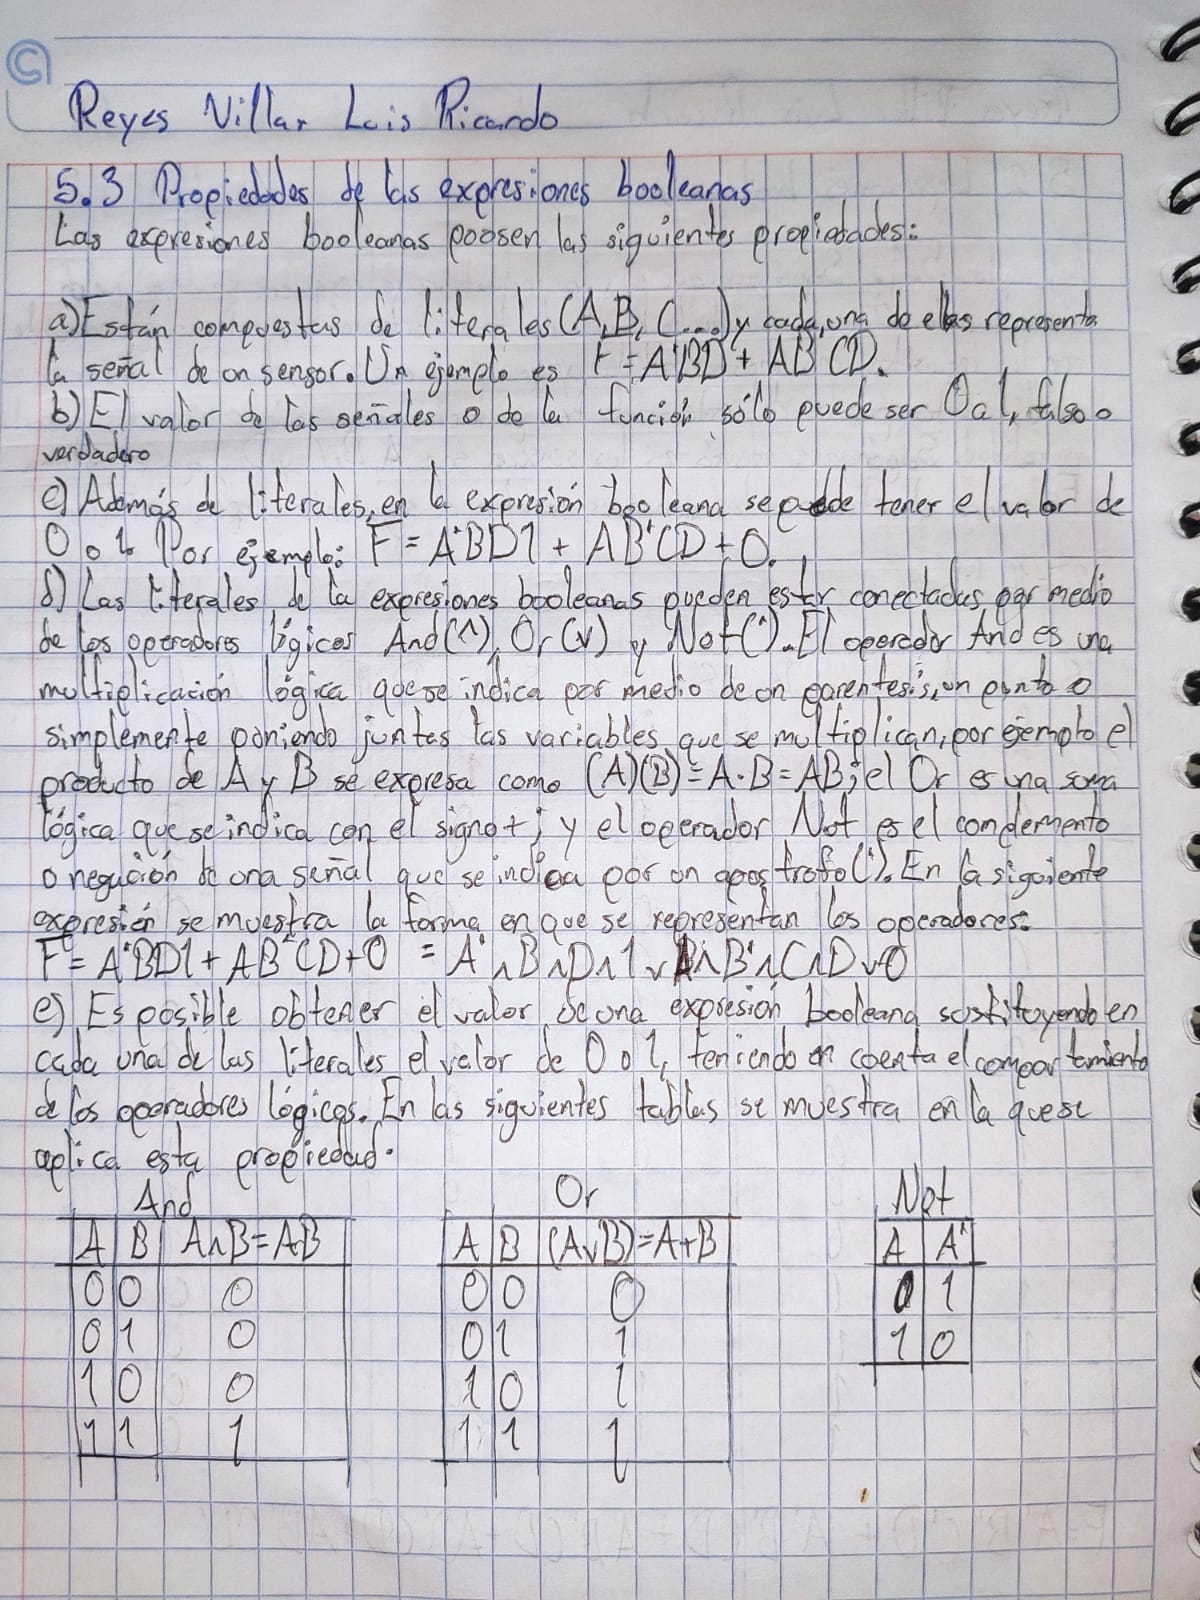 Reyes Villar Luis Ricardo
5.3 Propiedades de las expresiones booleanas
Las expresiones booleanas poosen las siguientes propiedades:
a) Están compuestas de literales (A, B, C....) y cada una de ellas representa
la señal de un sensor. Un ejemplo es F = A'BD + AB'CD.
b) El valor de las señales o de la función sólo puede ser 0 o 1, falso o
verdadero
c) Además de literales, en la expresión booleana se puede tener el valor de
0 o 1. Por ejemplo: F = A'BD1 + AB'CD + 0.
d) Las literales de la expresiones booleanas pueden estar conectadas por medio
de los operadores lógicos And(∧), Or(∨) y Not('). El operador And es una
multiplicación lógica que se indica por medio de un parentesis, un punto o
simplemente poniendo juntas las variables que se multiplican, por ejemplo el
producto de A y B se expresa como (A)(B) = A·B = AB; el Or es una soma
lógica que se indica con el signo +; y el operador Not es el complemento
o negación de una señal que se indica por un apostrofo('). En la siguiente
expresión se muestra la forma en que se representan los operadores:
F = A'BD1 + AB'CD + 0 = A' ∧ B ∧ D ∧ 1 ∨ A ∧ B' ∧ C ∧ D ∨ 0
e) Es posible obtener el valor de una expresión booleana sustituyendo en
cada una de las literales el valor de 0 o 1, teniendo en cuenta el comportamiento
de los operadores lógicos. En las siguientes tablas se muestra en la que se
aplica esta propiedad.
And Or Not
A B A∧B=AB A B (A∨B)=A+B A A'
0 0 0 0 0 0 0 1
0 1 0 0 1 1 1 0
1 0 0 1 0 1
1 1 1 1 1 1